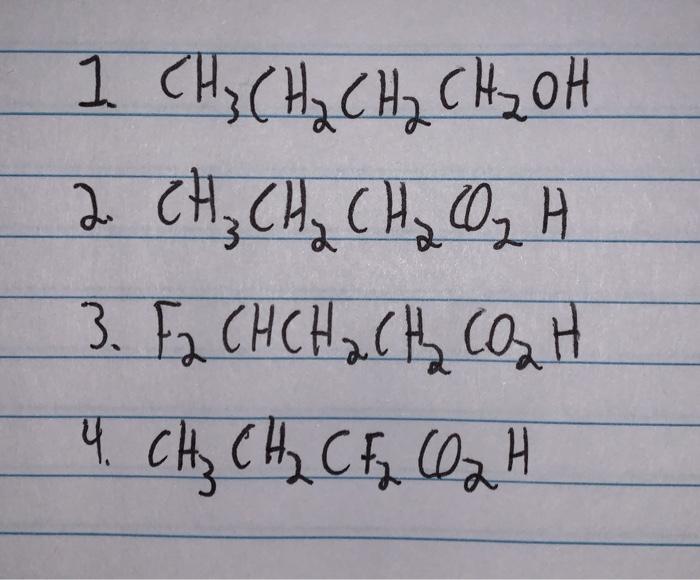 1. CH₃CH₂CH₂CH₂OH
2. CH₃CH₂CH₂CO₂H
3. F₂CHCH₂CH₂CO₂H
4. CH₃CH₂CF₂CO₂H